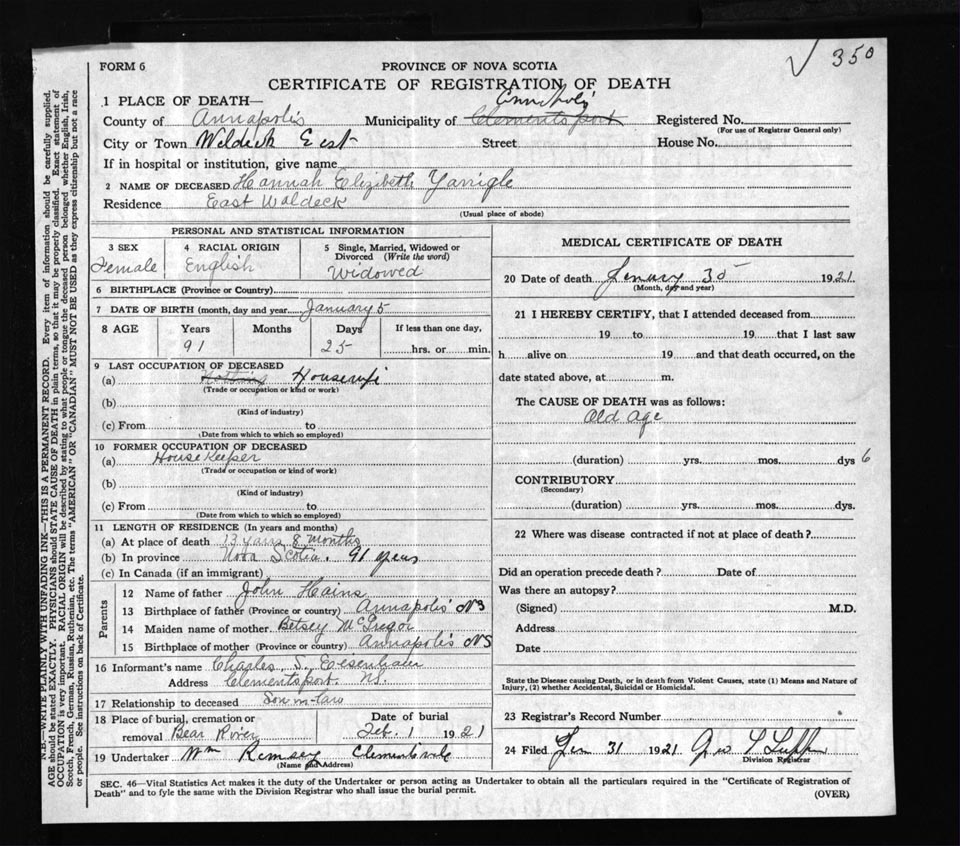 √ 350
FORM 6
PROVINCE OF NOVA SCOTIA
CERTIFICATE OF REGISTRATION OF DEATH
1 PLACE OF DEATH—
County of Annapolis Municipality of Clementsport Registered No.
(For use of Registrar General only)
City or Town Waldeck East Street House No.
If in hospital or institution, give name
2 NAME OF DECEASED Hannah Elizibeth Yarrigle
Residence East Waldeck
(Usual place of abode)
PERSONAL AND STATISTICAL INFORMATION
3 SEX 4 RACIAL ORIGIN 5 Single, Married, Widowed or Divorced (Write the word)
Female English Widowed
6 BIRTHPLACE (Province or Country)
7 DATE OF BIRTH (month, day and year) January 5
8 AGE Years Months Days If less than one day,
91 25 hrs. or min.
9 LAST OCCUPATION OF DECEASED
(a) Nothing Housewife
(Trade or occupation or kind or work)
(b)
(Kind of industry)
(c) From to
(Date from which to which so employed)
10 FORMER OCCUPATION OF DECEASED
(a) House Keeper
(Trade or occupation or kind of work)
(b)
(Kind of industry)
(c) From to
(Date from which to which so employed)
11 LENGTH OF RESIDENCE (In years and months)
(a) At place of death 13 years 8 months
(b) In province Nova Scotia. 91 years
(c) In Canada (if an immigrant)
Parents
12 Name of father John Hains
13 Birthplace of father (Province or country) Annapolis NS
14 Maiden name of mother Betsey McGregor
15 Birthplace of mother (Province or country) Annapolis NS
16 Informant's name Charles S. Eisenhauer
Address Clementsport NS.
17 Relationship to deceased Son in law
18 Place of burial, cremation or removal Bear River Date of burial Feb. 1 1921
19 Undertaker Wm Ramsey Clementsvale
(Name and Address)
MEDICAL CERTIFICATE OF DEATH
20 Date of death January 30 1921
(Month, day and year)
21 I HEREBY CERTIFY, that I attended deceased from
19 to 19 that I last saw
h alive on 19 and that death occurred, on the
date stated above, at m.
The CAUSE OF DEATH was as follows:
Old Age
(duration) yrs. mos. dys 6
CONTRIBUTORY
(Secondary)
(duration) yrs. mos. dys.
22 Where was disease contracted if not at place of death?
Did an operation precede death? Date of
Was there an autopsy?
(Signed) M.D.
Address
Date
State the Disease causing Death, or in death from Violent Causes, state (1) Means and Nature of
Injury, (2) whether Accidental, Suicidal or Homicidal.
23 Registrar's Record Number
24 Filed Jan 31 1921
Division Registrar
SEC. 46—Vital Statistics Act makes it the duty of the Undertaker or person acting as Undertaker to obtain all the particulars required in the "Certificate of Registration of
Death" and to fyle the same with the Division Registrar who shall issue the burial permit.
(OVER)
N.B.—WRITE PLAINLY WITH UNFADING INK—THIS IS A PERMANENT RECORD. Every item of information should be carefully supplied.
AGE should be stated EXACTLY. PHYSICIANS should STATE CAUSE OF DEATH in plain terms, so that it may be properly classified. Exact statement of
OCCUPATION is very important. RACIAL ORIGIN will be described by stating to what people or tongue the deceased person belonged, whether English, Irish,
Scotch, French, German, Russian, Ruthenian, etc. The terms "AMERICAN" OR "CANADIAN" MUST NOT BE USED as they express citizenship but not a race
or people. See instructions on back of Certificate.